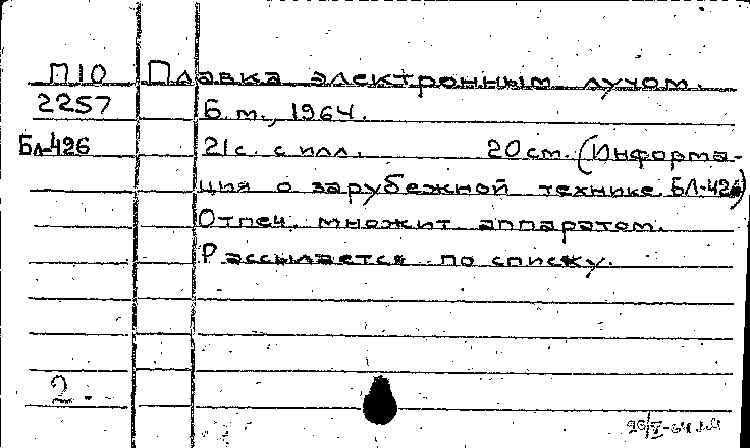 П10 Плавка электронным лучом.
2257 Б.т., 1964.
Бл-426 21с. с илл. 20 ст. (Информа-
ция о зарубежной технике БЛ-426)
Отпеч. множит аппаратом.
Рассылается по списку.
2.